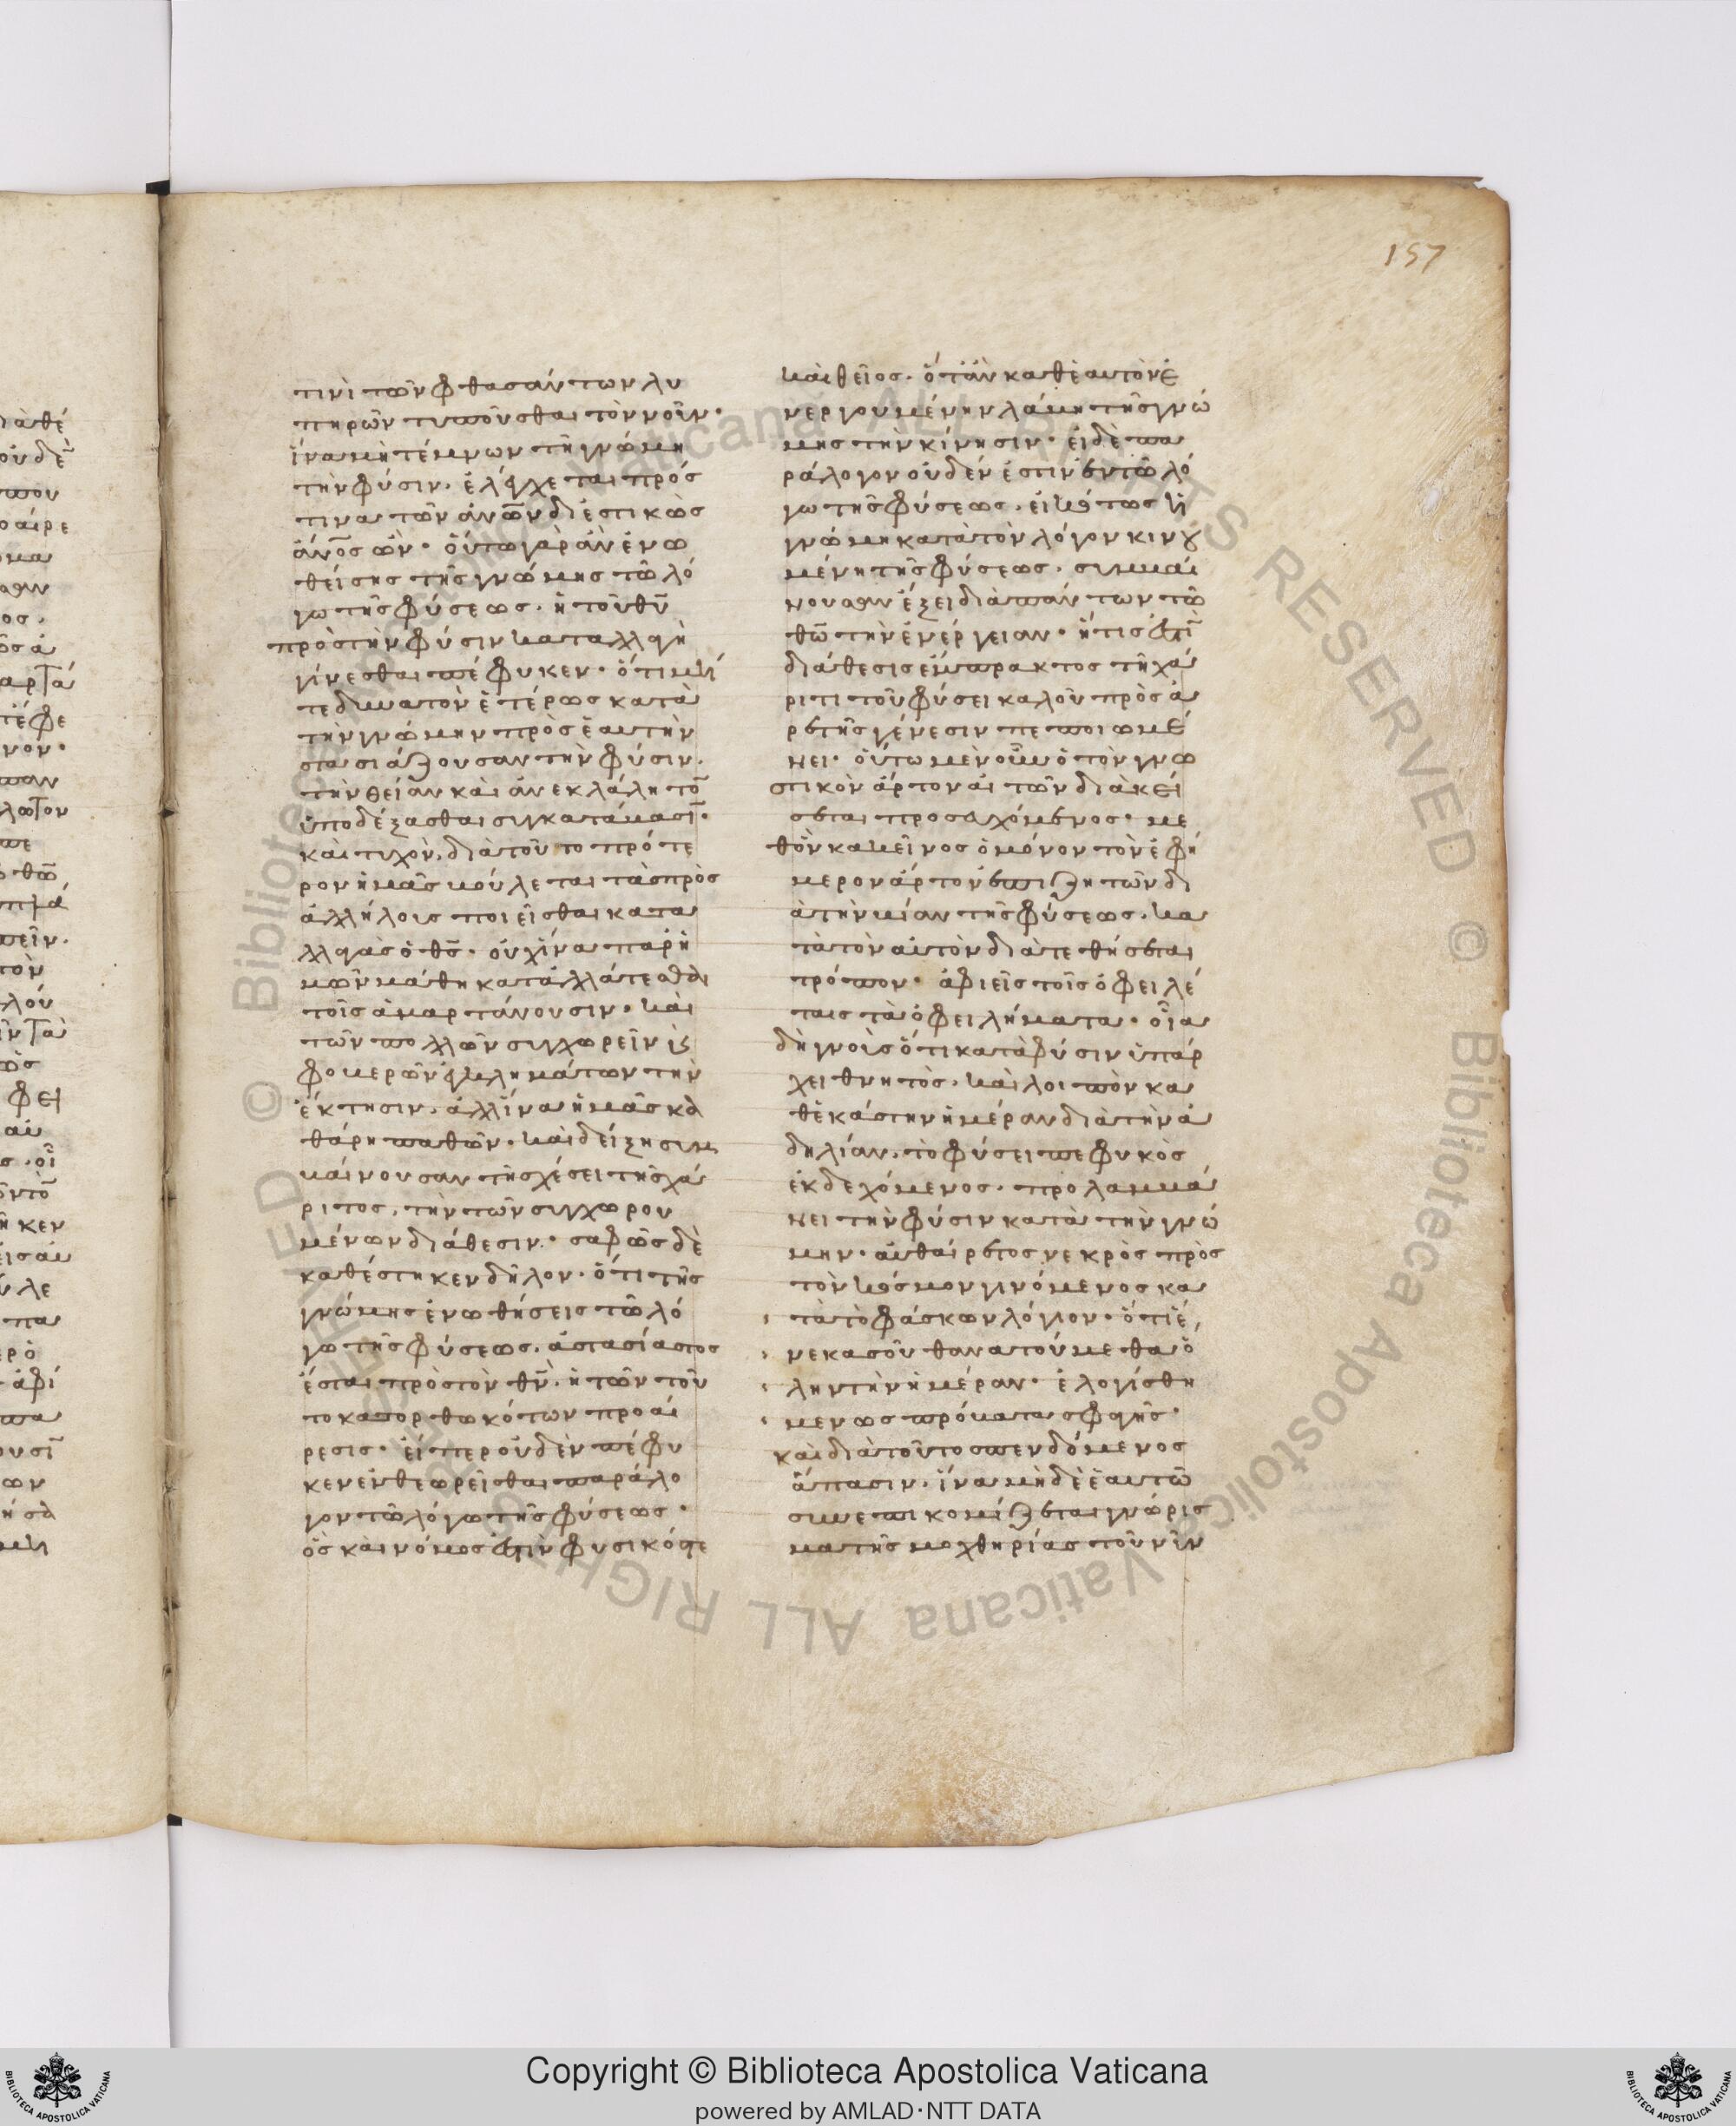 157
τινὶ τῶν φθασάντων λυ
πηρῶν τυποῦσθαι τὸν νοῦν·
ἵνα μὴ τέμνων τῇ γνώμῃ
τὴν φύσιν, ἐλέγχεται πρός
τινα τῶν ἀν̅ω̅ν διεστικὼς
ἄν̅ο̅ς ὤν· οὕτω γὰρ ἂν ἑνω
θείσης τῆς γνώμης τῶ λό
γω τῆς φύσεως, ἡ τοῦ θ̅υ̅
πρὸς τὴν φύσιν καταλλαγὴ
γίνεσθαι πέφυκεν· ὅτι μή
τε δυνατὸν ἑτέρως κατὰ
τὴν γνώμην πρὸς ἑαυτὴν
στασιάζουσαν τὴν φύσιν,
τὴν θείαν καὶ ἀνεκλάλητο̅
ὑποδέξασθαι συγκατάβασι̅·
καὶ τυχὸν, διὰ τοῦτο πρότε
ρον ἡμᾶς βούλεται τὰς πρὸς
ἀλλήλους ποιεῖσθαι κατα
λλαγὰς ὁ θ̅ς̅· οὐχ ἵνα παρ' ἡ
μῶν μάθη καταλλάττεσθαι
τοῖς ἁμαρτάνουσιν· καὶ
τῶν πολλῶν συγχωρεῖν κ(αὶ)
φοβερῶν ἐγκλημάτων τὴν
ἔκτησιν, ἀλλ' ἵνα ἡμᾶς κα
θάρη παθῶν· καὶ δείξη συμ
βαίνουσαν τῇ σχέσει τῆς χά
ριτος, τὴν τῶν συγχωρου
μένων διάθεσιν· σαφῶς δὲ
καθέστηκεν δῆλον· ὅτι τῆς
γνώμης ἑνωθήσεις τῶ λό
γω τῆς φύσεως, ἀστασίαστος
ἔσται πρὸς τὸν θ̅ν̅, ἡ τῶν τοῦ
το κατορθωκότων προαί
ρεσις· εἴπερ οὐδὲν πέφυ
κεν ἐνθεωρεῖσθαι παράλο
γον τῶ λόγω τῆς φύσεως·
ὃς καὶ νόμος ἐστὶν φυσικός τε
καὶ θεῖος· ὅτ' ἂν καθ' ἑαυτὸν ἐ
νεργουμένην λάβη τῆς γνώ
μης τὴν κίνησιν· εἰ δὲ πα
ράλογον οὐδέν ἐστιν ἐν τῶ λό
γω τῆς φύσεως, εἰκότως ἡ
γνώμη κατὰ τὸν λόγον κινου
μένη τῆς φύσεως, συμβαί
νουσαν ἕξει διὰ πάντων τῶ
θ̅ω̅ τὴν ἐνέργειαν· ἥτις ἐστὶ
διάθεσις ἔμπρακτος τῇ χά
ριτι τοῦ φύσει καλοῦ πρὸς ἀ
ρετῆς γένεσιν πεποιωμέ
νει· οὕτω μὲν οὖν ὁ τὸν γνω
στικὸν ἄρτον αἰτῶν διακεί
σεται προσευχόμενος· με
θ' ὃν κἀκεῖνος ὁ μόνον τὸν ἐφή
μερον ἄρτον ἐπιζητῶν δι
ὰ τὴν βίαν τῆς φύσεως, κα
τὰ τὸν αὐτὸν διατεθήσεται
τρόπον· ἀφιεὶς τοῖς ὀφειλέ
ταις τὰ ὀφειλήματα· οἷα
δὴ γνοὺς ὅτι κατὰ φύσιν ὑπάρ
χει θνητὸς, καὶ λοιπὸν κα
θ' ἑκάστην ἡμέραν διὰ τὴν ἀ
δηλίαν, τὸ φύσει πεφυκὸς
ἐκδεχόμενος, προλαμβά
νει τὴν φύσιν κατὰ τὴν γνώ
μην· αὐθαίρετος νεκρὸς πρὸς
τὸν κόσμον γινόμενος κα
τὰ τὸ φάσκων λόγιον· ὅτι ἕ
νεκα σοῦ θανατούμεθα ὅ
λην τὴν ἡμέραν· ἐλογίσθη
μεν ὡς πρόβατα σφαγῆς·
καὶ διὰ τοῦτο σπενδόμενος
ἅπασιν, ἵνα μὴ δὲ ἑαυτῶ
συνεπικομίζεται γνώρισ
μα τῆς μοχθηρίας τοῦ νῦν
Copyright © Biblioteca Apostolica Vaticana
powered by AMLAD·NTT DATA